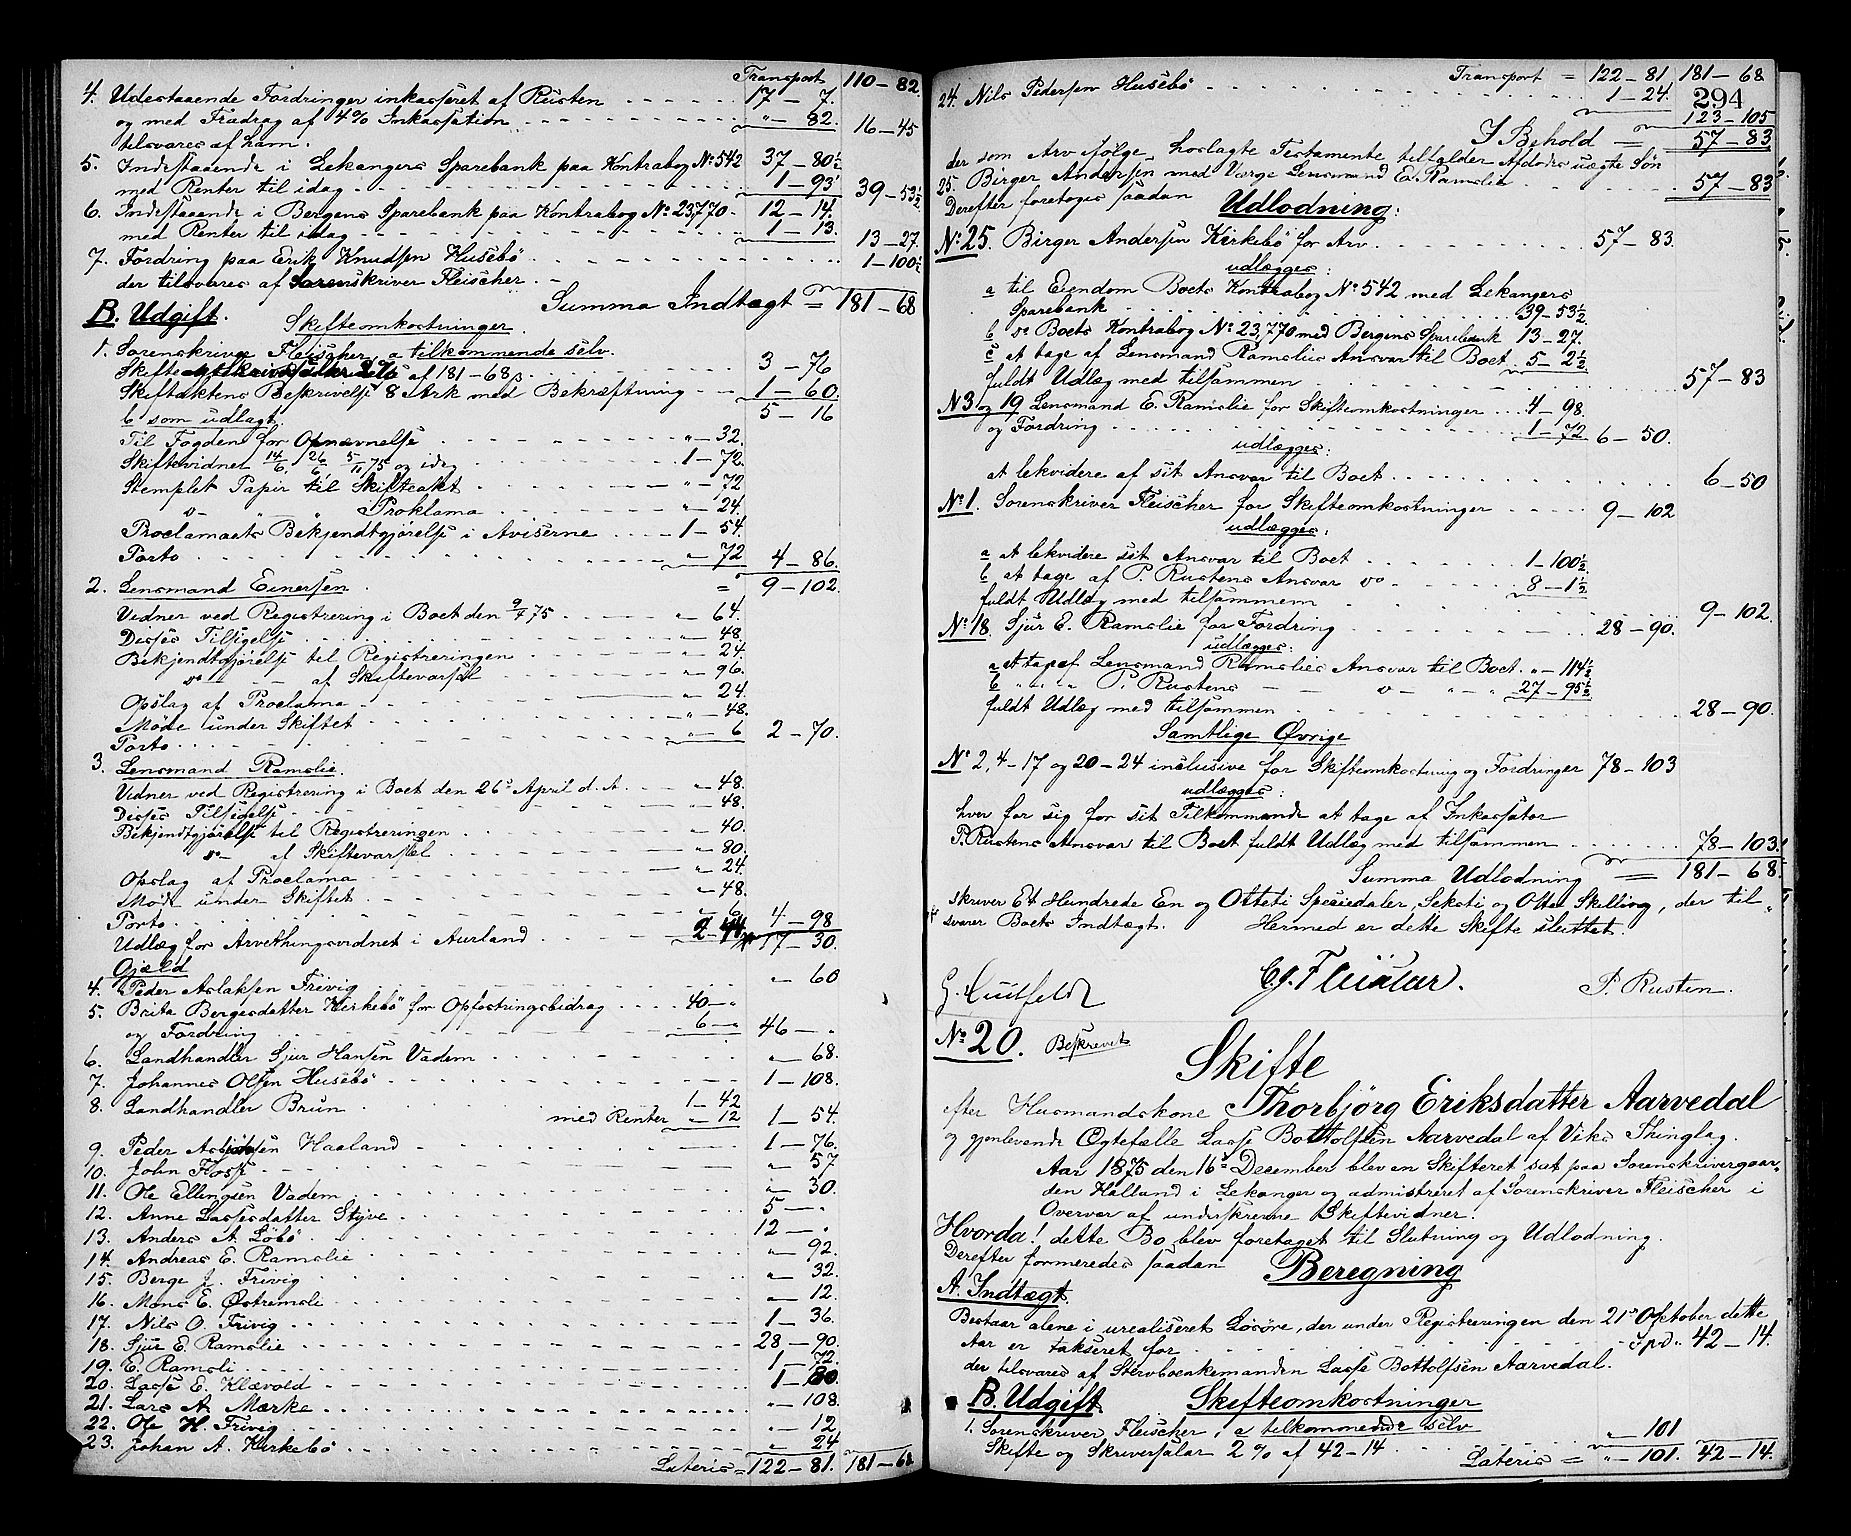 Transport 110 – 82.
4. Udestaaende Fordringer inkasseret af Rusten 17 – 7.
og med Fradrag af 4% Inkassation " – 82. 16 – 45
tilsvares af ham.
5. Indestaaende i Lekangers Sparebank paa Kontrabog No 542 37 – 80½
med Renter til idag 1 – 93 39 – 53½
6. Indestaaende i Bergens Sparebank paa Kontrabog No 23,770. 12 – 14.
med Renter til idag 1 – 13. 13 – 27.
7. Fordring paa Erik Knudsen Husebö 1 – 100½
der tilsvares af Sorenskriver Fleischer.
Summa Indtægt = 181 – 68
B. Udgift.
Skifteomkostninger.
1. Sorenskriver Fleischer, a tilkommende selv.
Skifte 2% af 181 – 68 3 – 76
Skifteaktens Beskrivelse 8 Ark med Bekræftning 1 – 60.
5 – 16
b som udlagt.
Til Fogden for Opnævnelse " – 32.
Skiftevidner 14/6, 26/6, 5/11 75 og idag 1 – 72.
Stemplet Papir til Skifteakt " – 72
do " " Proklama " – 24.
Proclamaets Bekjendtgjørelse i Aviserne 1 – 54.
Porto " – 72 4 – 86.
= 9 – 102.
2. Lensmand Einersen.
Vidner ved Registrering i Boet den 9/4 75 " – 64.
Disses Tilsigelse " – 48.
Bekjendtgjørelse til Registreringen " – 24.
do – af Skiftevarsel " – 96.
Opslag af Proclama " – 24.
Møde under Skiftet " – 48.
Porto " – 6 2 – 70.
3. Lensmand Ramslie.
Vidner ved Registrering i Boet den 26de April d. A. " – 48.
Disses Tilsigelse " – 48.
Bekjendtgjørelse til Registreringen " – 40.
do – af Skiftevarsel " – 80.
Opslag af Proclama " – 24.
Møde under Skiftet " – 48.
Porto " – 6 4 – 98
Udlæg for Arvethingsvidnet i Aurland 2 – 44 17 – 30.
Gjæld
4. Peder Aslaksen Frivig " – 60
5. Brita Bergesdatter Kirkebö for Opfostringsbidrag 40 – "
og Fordring 6 – " 46 – "
6. Landhandler Sjur Hansen Vadem " – 68.
7. Johannes Olsen Husebö 1 – 108.
8. Landhandler Brun 1 – 42
med Renter " – 12 1 – 54.
9. Peder Asbjørnsen Haaland 1 – 76.
10. John Flosse " – 57
11. Ole Ellingsen Vadem " – 30.
12. Anne Lassesdatter Styve 5 – "
13. Anders A. Löbö 12 – "
14. Andreas E. Ramslie " – 92.
15. Berge J. Frivig " – 32.
16. Mons E. Östremsli " – 12.
17. Nils O. Frivig 1 – 36.
18. Sjur E. Ramslie 28 – 90.
19. E. Ramsli 1 – 72.
20. Lasse E. Klævold 1 – 80.
21. Lars A. Marke " – 108.
22. Ole H. Frivig " – 12
23. Johan A. Kirkebö " – 24
Lateris = 122 – 81. 181 – 68
Transport = 122 – 81 181 – 68
24. Nils Pedersen Husebö 1 – 24.
294
123 – 105
I Behold = 57 – 83
der som Arv ifölge hoslagte Testamente tilfalder Afdödes uægte Sön
25. Birger Andersen med Værge Lensmand E. Ramslie 57 – 83
Derefter foretoges saadan
Udlodning:
No 25. Birger Andersen Kirkebö for Arv 57 – 83.
udlægges:
a til Eiendom Boets Kontrabog No 542 med Lekangers
Sparebank 39 – 53½
b do Boets Kontrabog No 23,770 med Bergens Sparebank 13 – 27.
c at tage af Lensmand Ramslies Ansvar til Boet 5 – 2½
fuldt Udlæg med tilsammen 57 – 83
No 3 og 19 Lensmand E. Ramslie for Skifteomkostninger 4 – 98.
og Fordring 1 – 72 6 – 50.
udlægges:
at lekvidere af sit Ansvar til Boet 6 – 50
No 1. Sorenskriver Fleischer for Skifteomkostninger 9 – 102
udlægges:
a at lekvidere sit Ansvar til Boet 1 – 100½
b at tage af P. Rustens Ansvar do 8 – 1½
fuldt Udlæg med tilsammen 9 – 102
No 18. Sjur E. Ramslie for Fordring 28 – 90.
udlægges:
a at tage af Lensmand Ramslies Ansvar til Boet " – 114½
b " " " P. Rustens – do – " – " 27 – 95½
fuldt Udlæg med tilsammen 28 – 90.
Samtlige Övrige
No 2, 4 – 17 og 20 – 24 inclusive for Skifteomkostning og Fordringer 78 – 103
udlægges:
hver for sig for sit Tilkommende at tage af Inkassator
P. Rustens Ansvar til Boet fuldt Udlæg med tilsammen 78 – 103.
Summa Udlodning = 181 – 68.
skriver Et Hundrede En og Otteti Speciedaler, Seksti og Otte Skilling, der til
svarer Boets Indtægt. Hermed er dette Skifte sluttet.
G. Huitfeldt C. G. Fleischer. P. Rusten.
No 20. Beskrevet
Skifte
efter Husmandskone Thorbjörg Eriksdatter Aarvedal
og gjenlevende Ægtefælle Lasse Bottolfsen Aarvedal af Viks Thinglag.
Aar 1875 den 16de December blev en Skifteret sat paa Sorenskrivergaar-
den Halland i Lekanger og admistreret af Sorenskriver Fleischer i
Overvær af underskrevne Skiftevidner.
Hvorda! dette Bo blev foretaget til Slutning og Udlodning.
Derefter formeredes saadan
Beregning
A. Indtægt.
Bestaar alene i urealiseret Lösöre, der under Registreringen den 21de October dette
Aar er takseret for Spd. 42 – 14.
der tilsvares af Stervboenkemanden Lasse Bottolfsen Aarvedal.
B. Udgift. Skifteomkostninger
1. Sorenskriver Fleischer, a tilkommende selv
Skifte og Skriversalær 2% af 42 – 14 " – 101
Lateris = " – 101. 42 – 14.